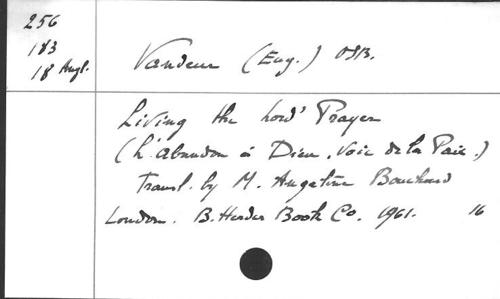 256
183
18 Angl.
Vandeur (Eug.) OSB.
Living the Lord' Prayer
(L'Abandon à Dieu, Voie de la Paix.)
Transl. by M. Angeline Bouchard
London. B. Herder Book Co. 1961. 16